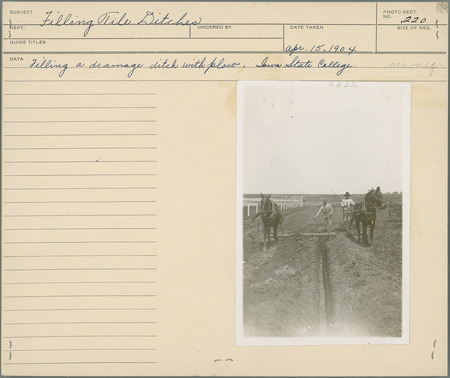 SUBJECT Filling Tile Ditches PHOTO SECT. NO. 220
DEPT. ORDERED BY DATE TAKEN SIZE OF NEG.
GUIDE TITLES Apr. 15, 1904
DATA Filling a drainage ditch with plow. Iowa State College. no neg.